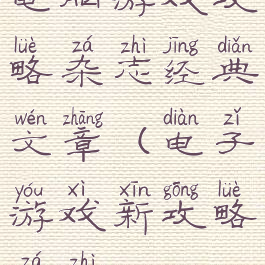 电脑游戏攻
lüè zá zhì jīng diǎn
略杂志经典
wén zhāng diàn zǐ
文章（电子
yóu xì xīn gōng lüè
游戏新攻略
zá zhì